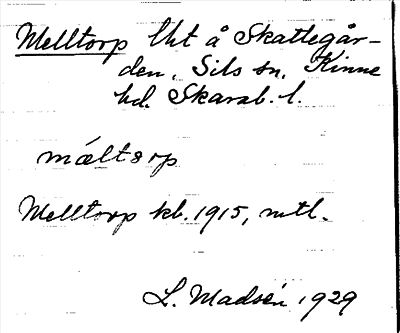 Melltorp lht å Skattegår-
den, Sils sn, Kinne
hd. Skarab. l.
mæltorp
Melltorp kb. 1915, mtl.
L. Madsén 1929